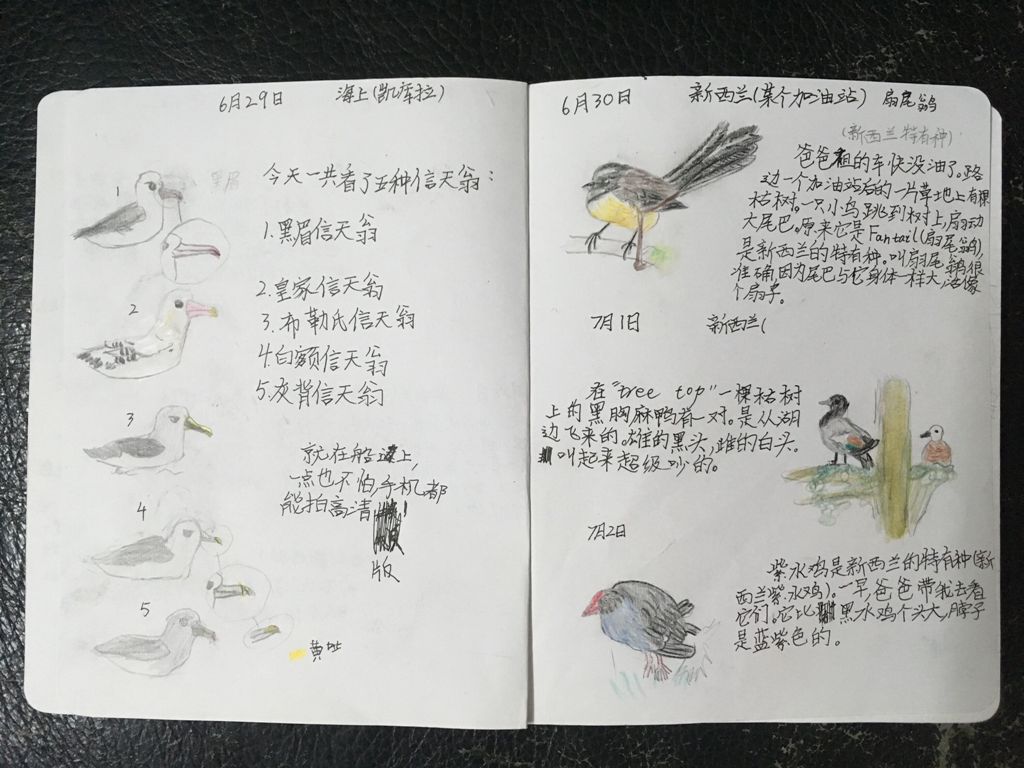 6月29日 海上(凯库拉)
今天一共看了五种信天翁:
1
黑眉
1.黑眉信天翁
2
2.皇家信天翁
3.布勒氏信天翁
4.白额信天翁
5.灰背信天翁
3
4
5
就在船上,
一点也不怕,手机都
能拍高清
版
黄
6月30日 新西兰(某个加油站) 扇尾鹟
(新西兰特有种)
爸爸租的车快没油了。路
边一个加油站后的一片草地上有棵
枯树。一只小鸟跳到树上,扇动
大尾巴。原来它是Fantail(扇尾鹟),
是新西兰的特有种。叫扇尾鹟很
准确,因为尾巴与它身体一样大,活像
个扇子。
7月1日 新西兰(
在"tree top"一棵枯树
上的黑胸麻鸭有一对。是从湖
边飞来的。雄的黑头,雌的白头。
叫起来超级吵的。
7月2日
紫水鸡是新西兰的特有种(新
西兰紫水鸡)。一早,爸爸带我去看
它们。它比黑水鸡个头大,脖子
是蓝紫色的。